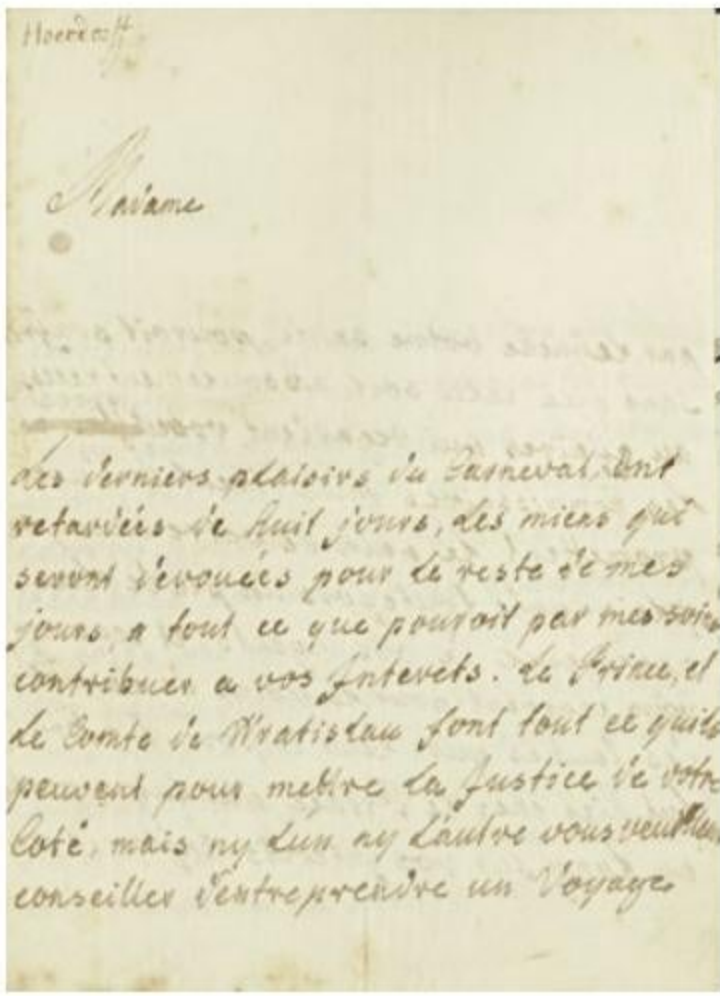 Madame
Les derniers plaisirs du Carneval, ont
retardées de huit jours, les miens qui
seront devouées pour le reste de mes
jours, a tout ce que pouroit par mes soins
contribuer a vos Interets. Le Prince, et
Le Comte de Wratislau font tout ce quils
peuvent pour mettre La Justice de votre
Coté, mais ny Lun ny L'autre vous
conseiller d'entreprendre un Voyage